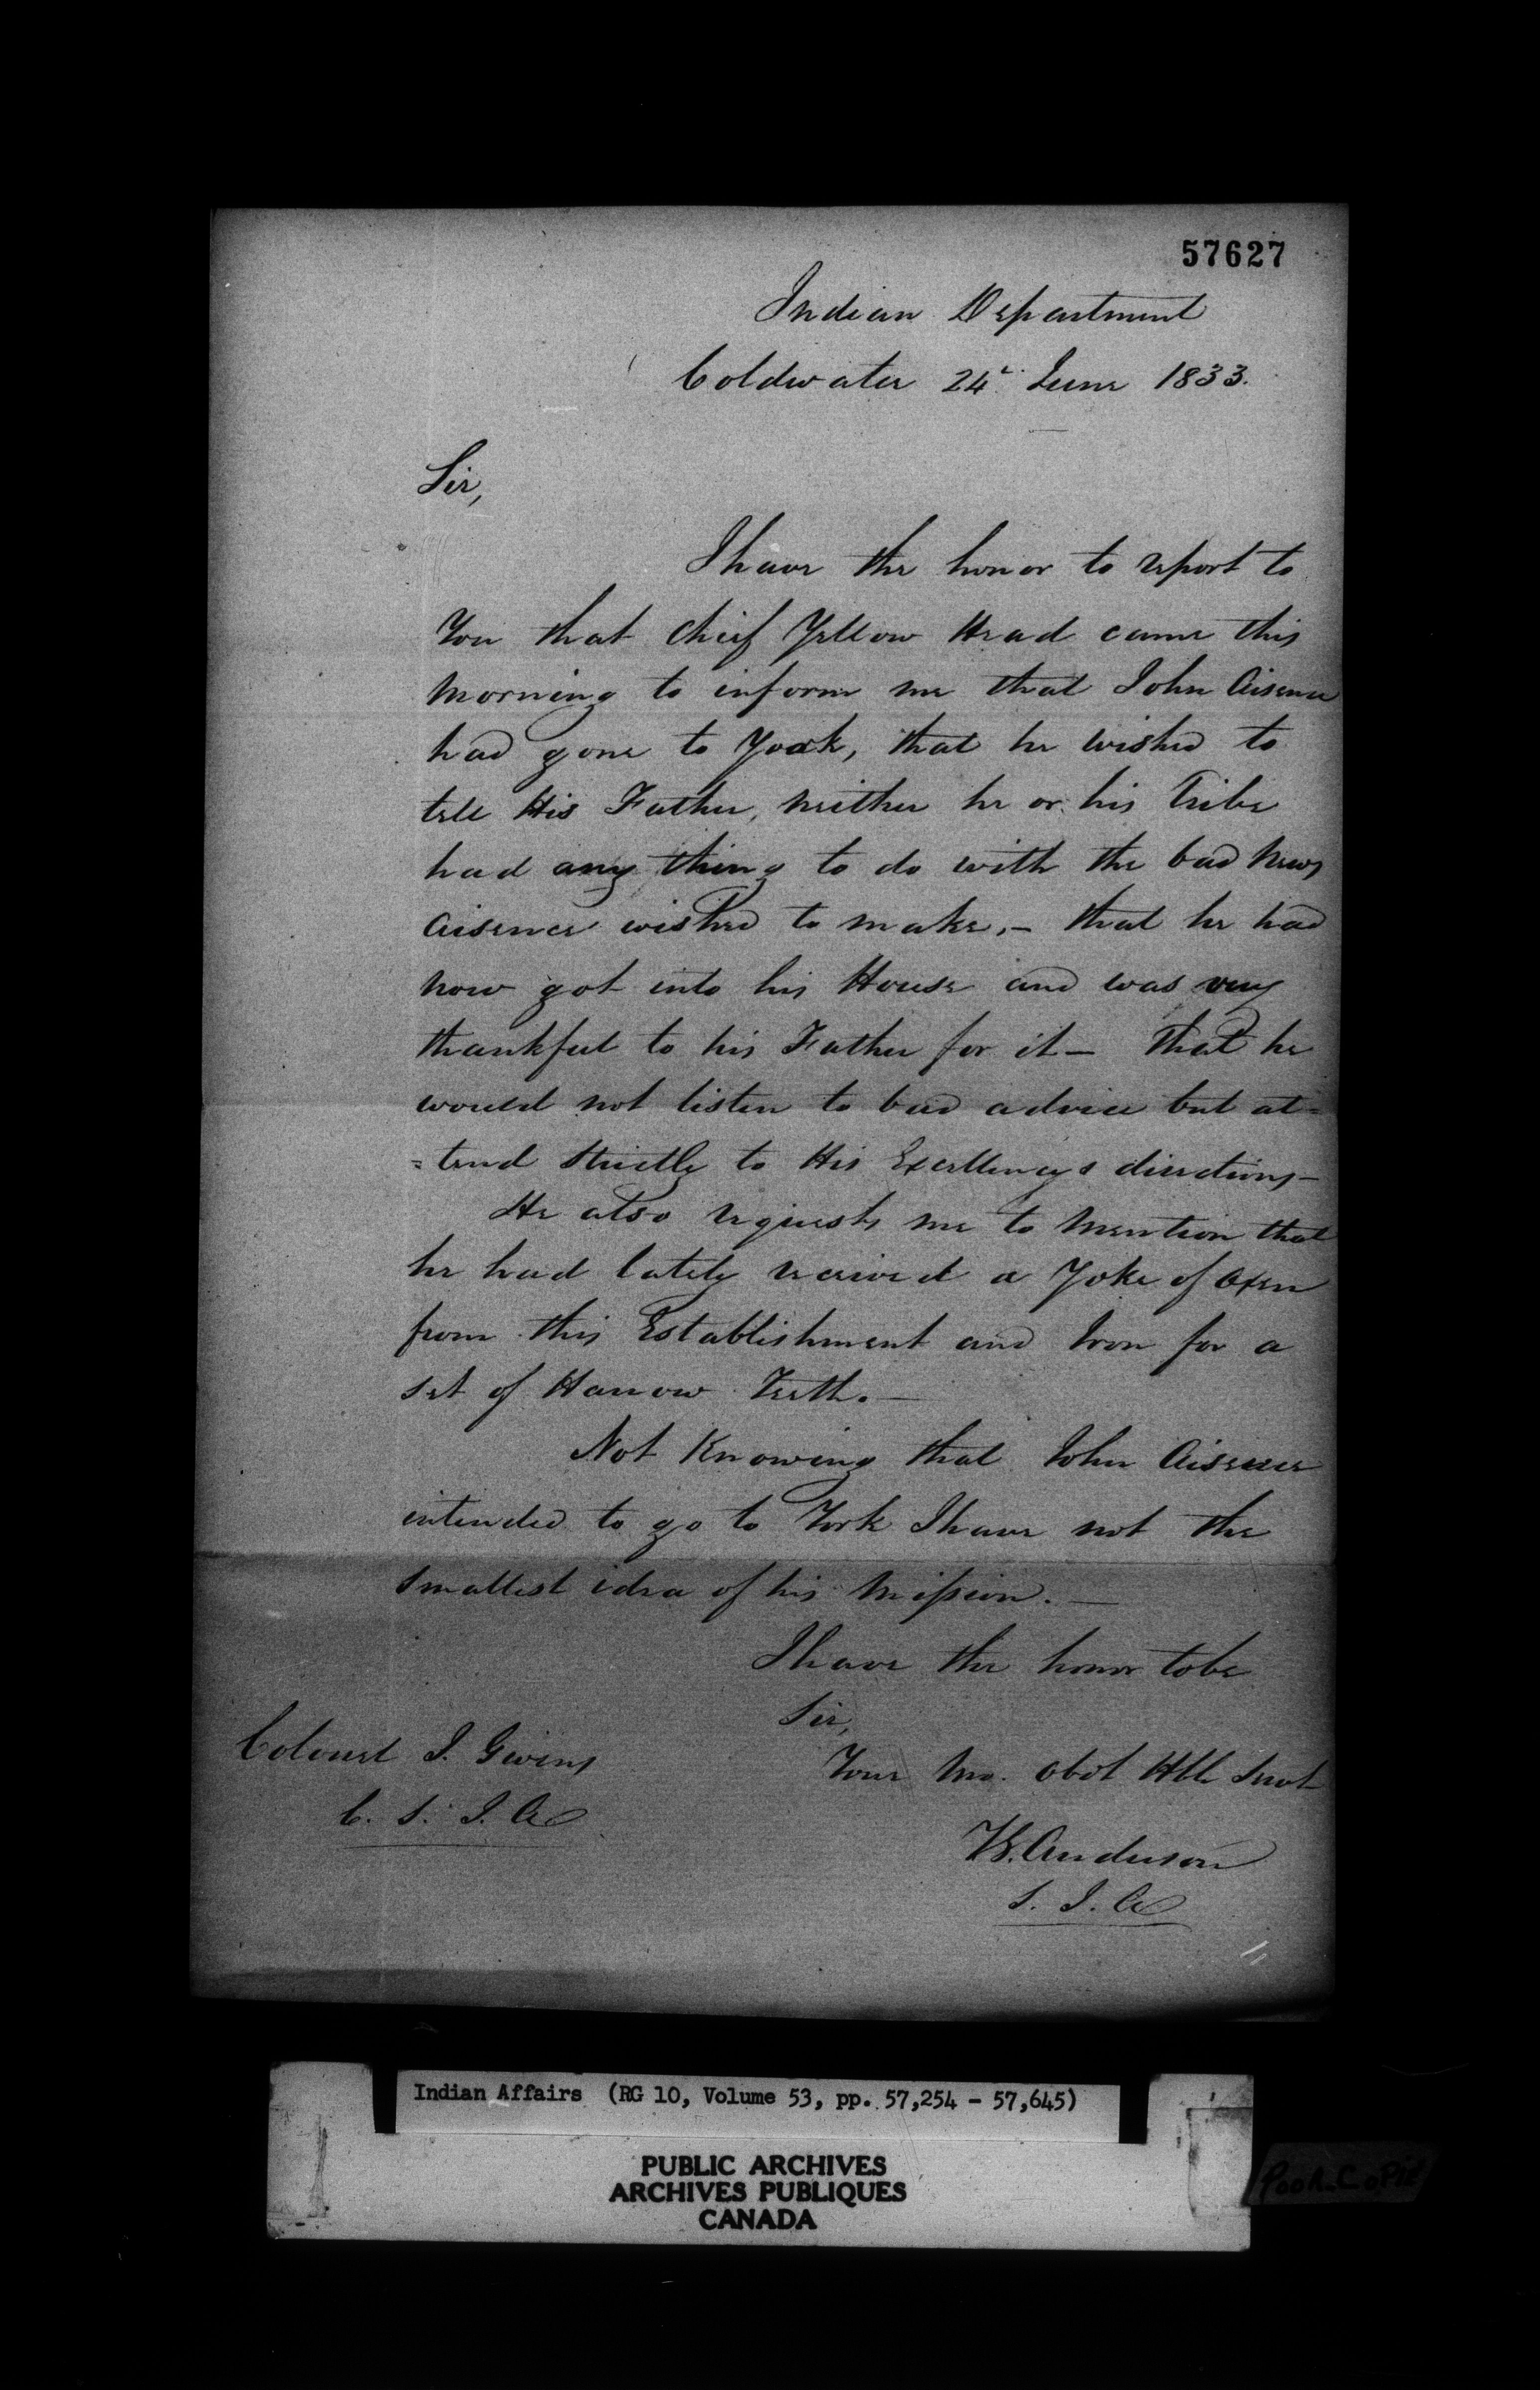 57627
Indian Department
Coldwater 24t. June 1833.
Sir,
I have the honor to report to
You that Chief Yellow Head came this
morning to inform me that John Aisence
had gone to York, that he wished to
tell His Father, neither he or his Tribe
had any thing to do with the bad News
Aisence wished to make, – that he had
now got into his House and was very
thankful to his Father for it – That he
would not listen to bad advice but at=
=tend strictly to His Excellencys directions –
He also requests me to mention that
he had lately received a Yoke of Oxen
from this Establishment and Iron for a
set of Harrow Teeth. –
Not Knowing that John Aisence
intended to go to York I have not the
smallest idea of his Mission. –
I have the honor to be
Sir,
Your Mo. Obdt Hble Servt
Colonel J. Givins
C. S. I. A
T.G. Anderson
S. I. A
Indian Affairs (RG 10, Volume 53, pp. 57,254 - 57,645)
PUBLIC ARCHIVES
ARCHIVES PUBLIQUES
CANADA
Poor Copie